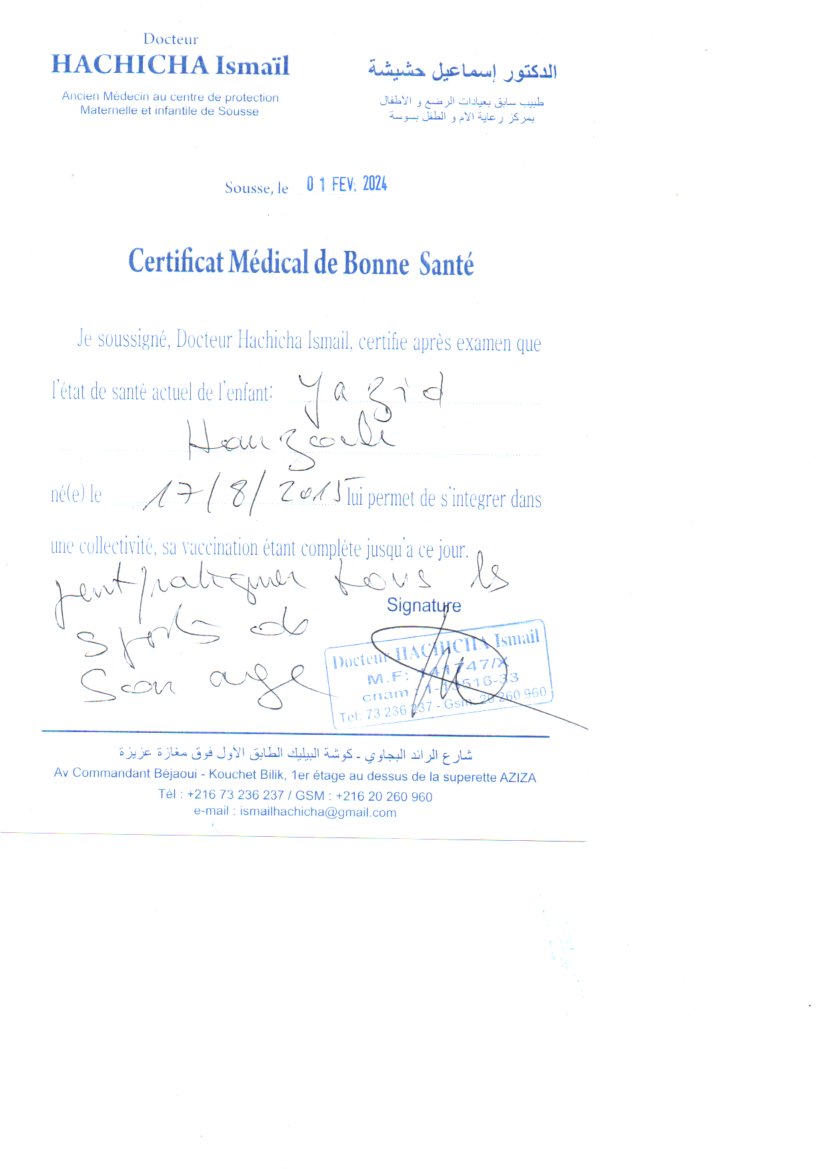 Docteur
HACHICHA Ismaïl
Ancien Médecin au centre de protection
Maternelle et infantile de Sousse
الدكتور إسماعيل حشيشة
طبيب سابق بعيادات الرضع و الاطفال
بمركز رعاية الام و الطفل بسوسة
Sousse, le 01 FEV. 2024
Certificat Médical de Bonne Santé
Je soussigné, Docteur Hachicha Ismail, certifie après examen que
l'état de santé actuel de l'enfant: Yazid
né(e) le 17/8/2015 lui permet de s'integrer dans
une collectivité, sa vaccination étant complète jusqu'a ce jour.
peut pratiquer tous les
sports de
Signature
son age
Docteur HACHICHA Ismail
M.F: /X
cnam :
Tel: 73 236 237 - Gsm: 20 260 960
شارع الرائد البجاوي - كوشة البيليك الطابق الأول فوق مغازة عزيزة
Av Commandant Béjaoui - Kouchet Bilik, 1er étage au dessus de la superette AZIZA
Tél : +216 73 236 237 / GSM : +216 20 260 960
e-mail : ismailhachicha@gmail.com